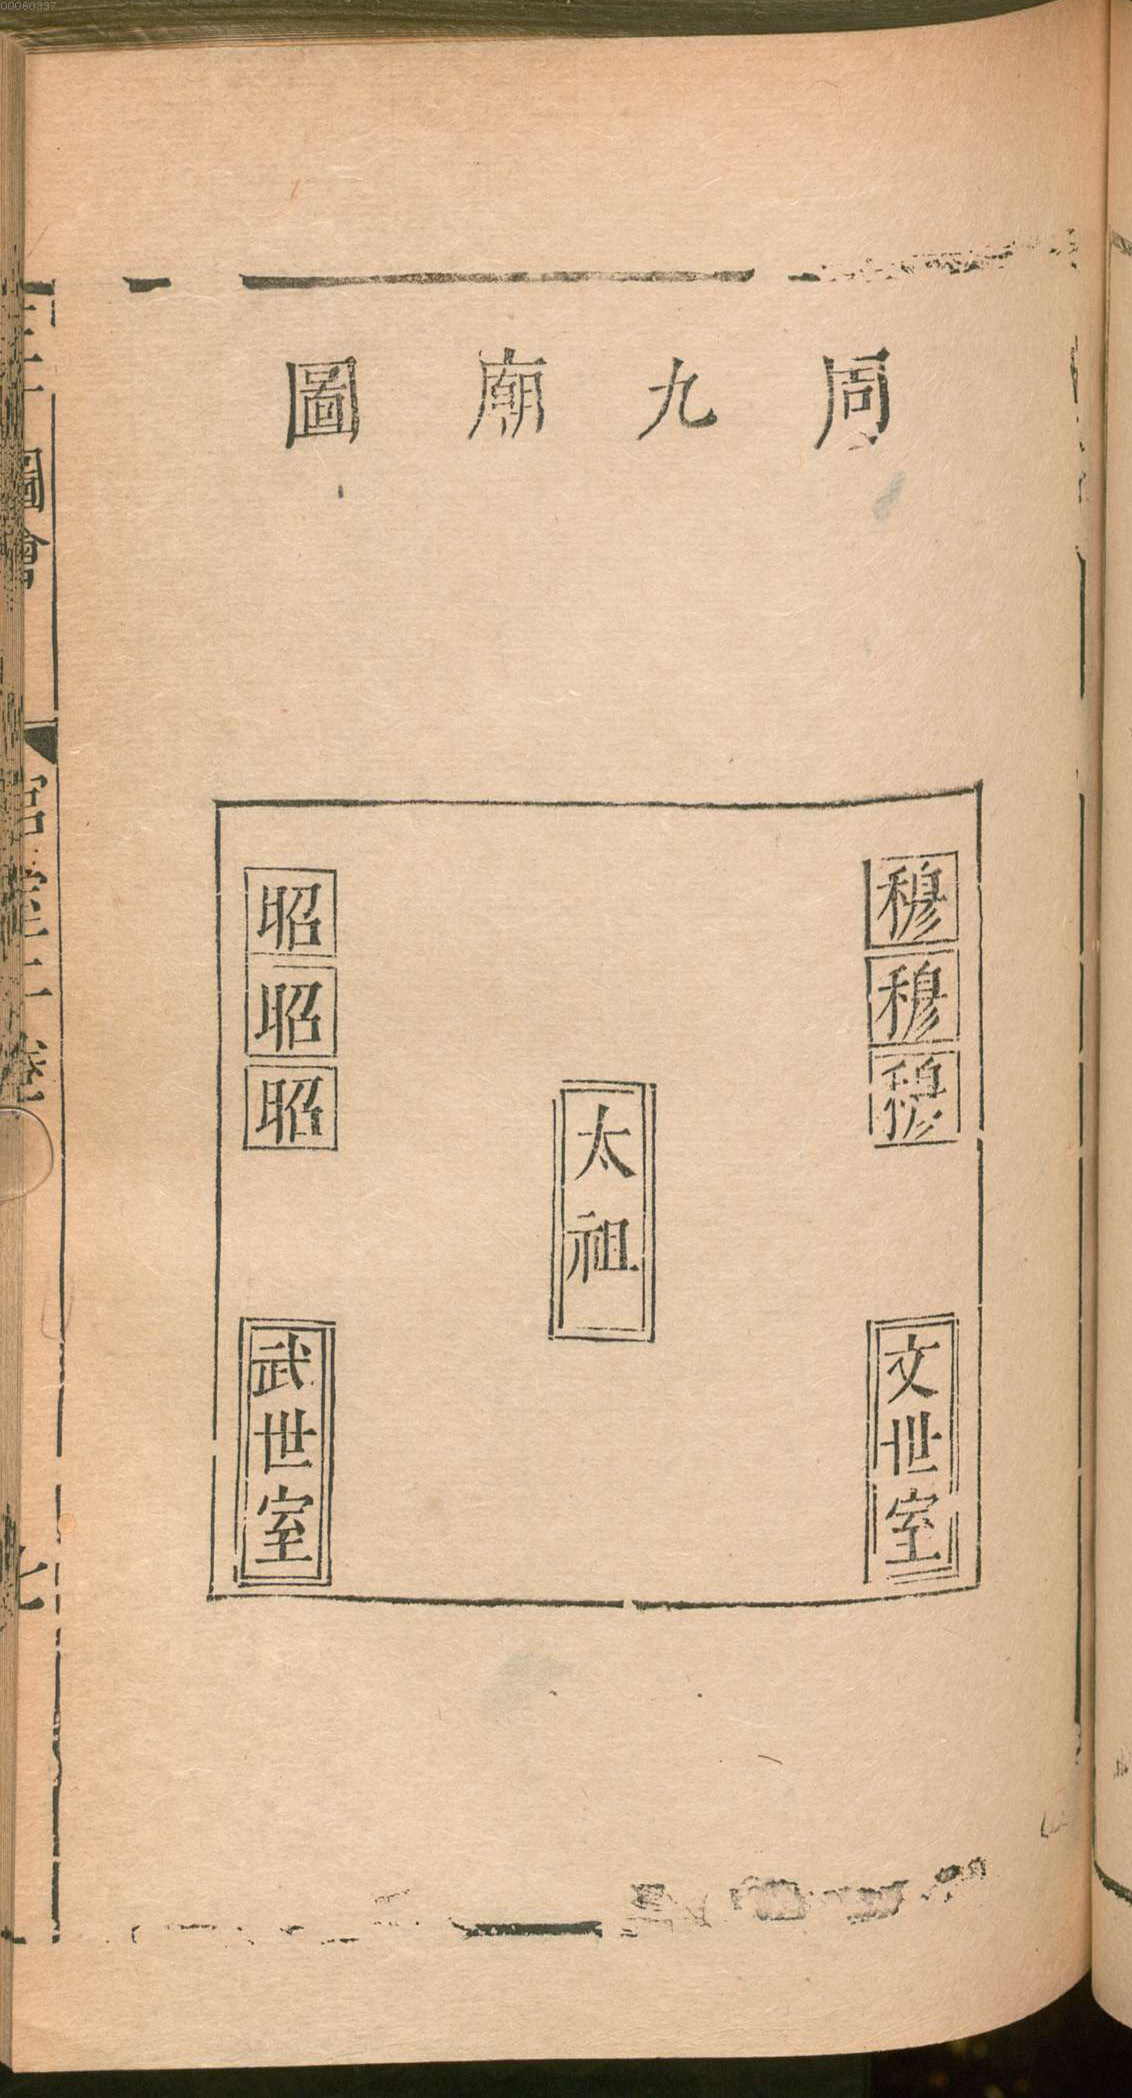 00060337
周九廟圖
穆
穆
穆
文世室
太祖
昭
昭
昭
武世室
圖會
宮室二卷
七